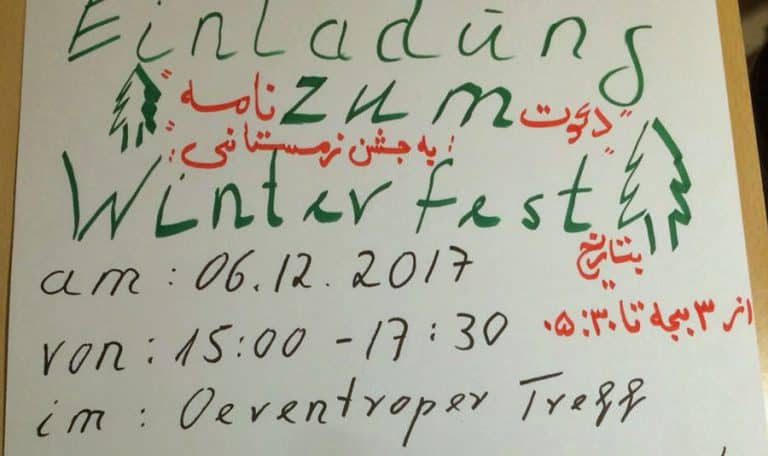 Einladung
zum
"دعوت نامه"
"به جشن زمستانی:"
Winterfest
am: 06.12.2017
بتاریخ
von: 15:00 - 17:30
از ۳ بجه تا ۰۵:۳۰
im: Oeventroper Treff